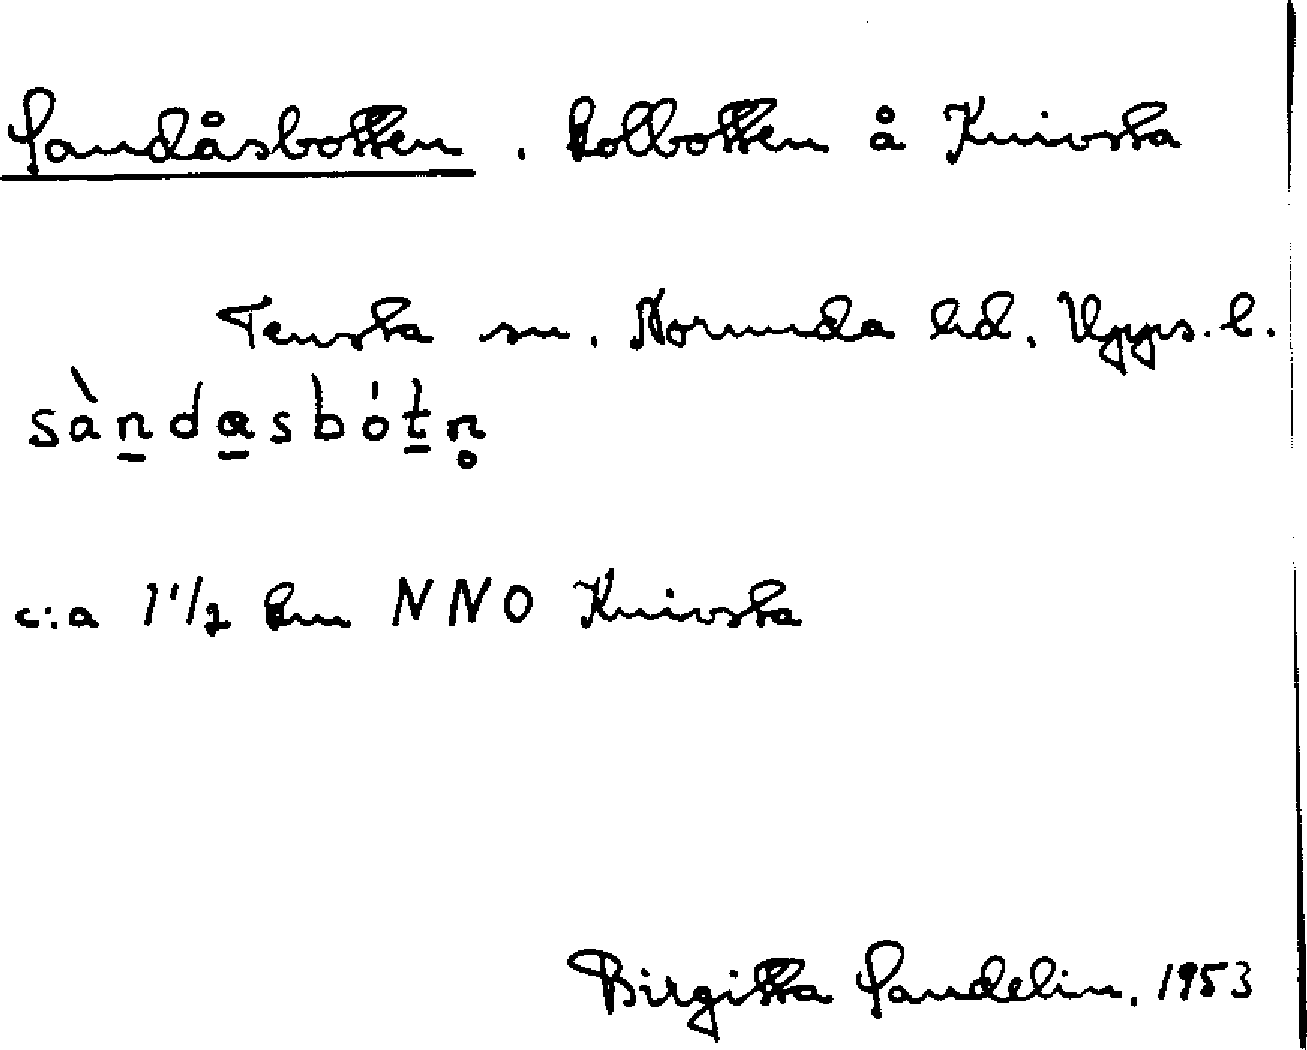 Sandåsbotten. Kolbotten å Knivsta
Tensta sn. Norunda hd. Upps. l.
sàn̠da̠sbót̠n̥
c:a 1 1/2 km NNO Knivsta
Birgitta Sandelin. 1953